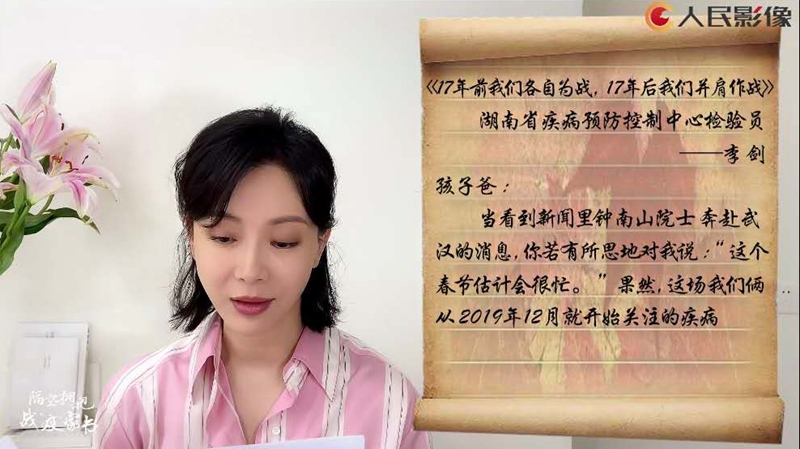 人民影像
《17年前我们各自为战,17年后我们并肩作战》
湖南省疾病预防控制中心检验员
——李剑
孩子爸:
当看到新闻里钟南山院士奔赴武
汉的消息,你若有所思地对我说:“这个
春节估计会很忙。”果然,这场我们俩
从2019年12月就开始关注的疾病
隔空拥抱
战“疫”家书